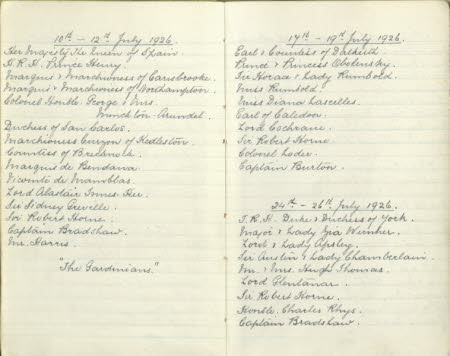 10th - 12th July 1926.
Her Majesty The Queen of Spain.
H.R.H. Prince Henry.
Marquis & Marchioness of Carisbrooke.
Marquis & Marchioness of Northampton.
Colonel Honble. George & Mrs.
Monckton Arundel.
Duchess of San Carlos.
Marchioness Curzon of Kedleston.
Countess of
Marquis de Bendana.
Vicomte de Mamblas.
Lord Alastair Innes-Ker.
Sir Sidney Greville.
Sir Robert Horne.
Captain Bradshaw.
Mr. Harris.
"The Gardinians."
17th - 19th July 1926.
Earl & Countess of Dalkeith.
Prince & Princess Obolensky.
Sir Horace & Lady Rumbold.
Miss Rumbold.
Miss Diana Lascelles.
Earl of Caledon.
Lord Cochrane.
Sir Robert Horne.
Colonel Loder.
Captain Burton.
24th - 26th July 1926.
T.R.H. Duke & Duchess of York.
Major & Lady Zia Wernher.
Lord & Lady Apsley.
Sir Austin & Lady Chamberlain.
Mr. & Mrs. Hugh Thomas.
Lord Glentanar.
Sir Robert Horne.
Honble. Charles Rhys.
Captain Bradshaw.